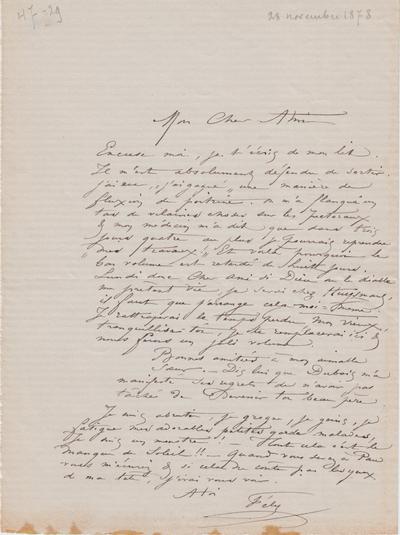 47-29
28 novembre 1878
Mon Cher Ami
Excuse moi, je t'écris de mon lit.
Il m'est absolument défendu de sortir.
j'ai eu, j'ai gagné " une manière de
fluxion de poitrine. on m'a flanqué un
tas de vilaines choses sur les pectoraux
& mon médecin m'a dit que dans trois
jours quatre au plus je pourrais reprendre
" mes travaux ". Et voilà pourquoi le
bon volume est retardé de huit jours.
Lundi donc Cher ami si Dieu ou le diable
me prêtent vie, je serai chez
il faut que j'arrange cela moi-même.
Je rattraperai le temps perdu, mon vieux,
tranquillise-toi, je te remplacerai ici &
nous ferons un joli volume.
Bonnes amitiés à mon aimable
Sœur. - Dis lui que Dubois m'a
manifesté ses regrets de n'avoir pas
de Devenir ton beau frère
Je suis abruti, je grogne, je geins, je
fatigue mes adorables petites garde malades,
Je suis un monstre! - Tout cela c'est le
manque de Soleil!! - Quand vous serez à
vous m'écrirez & si cela ne coute pas les yeux
de ma tête, j'irai vous voir.
A toi
Fély